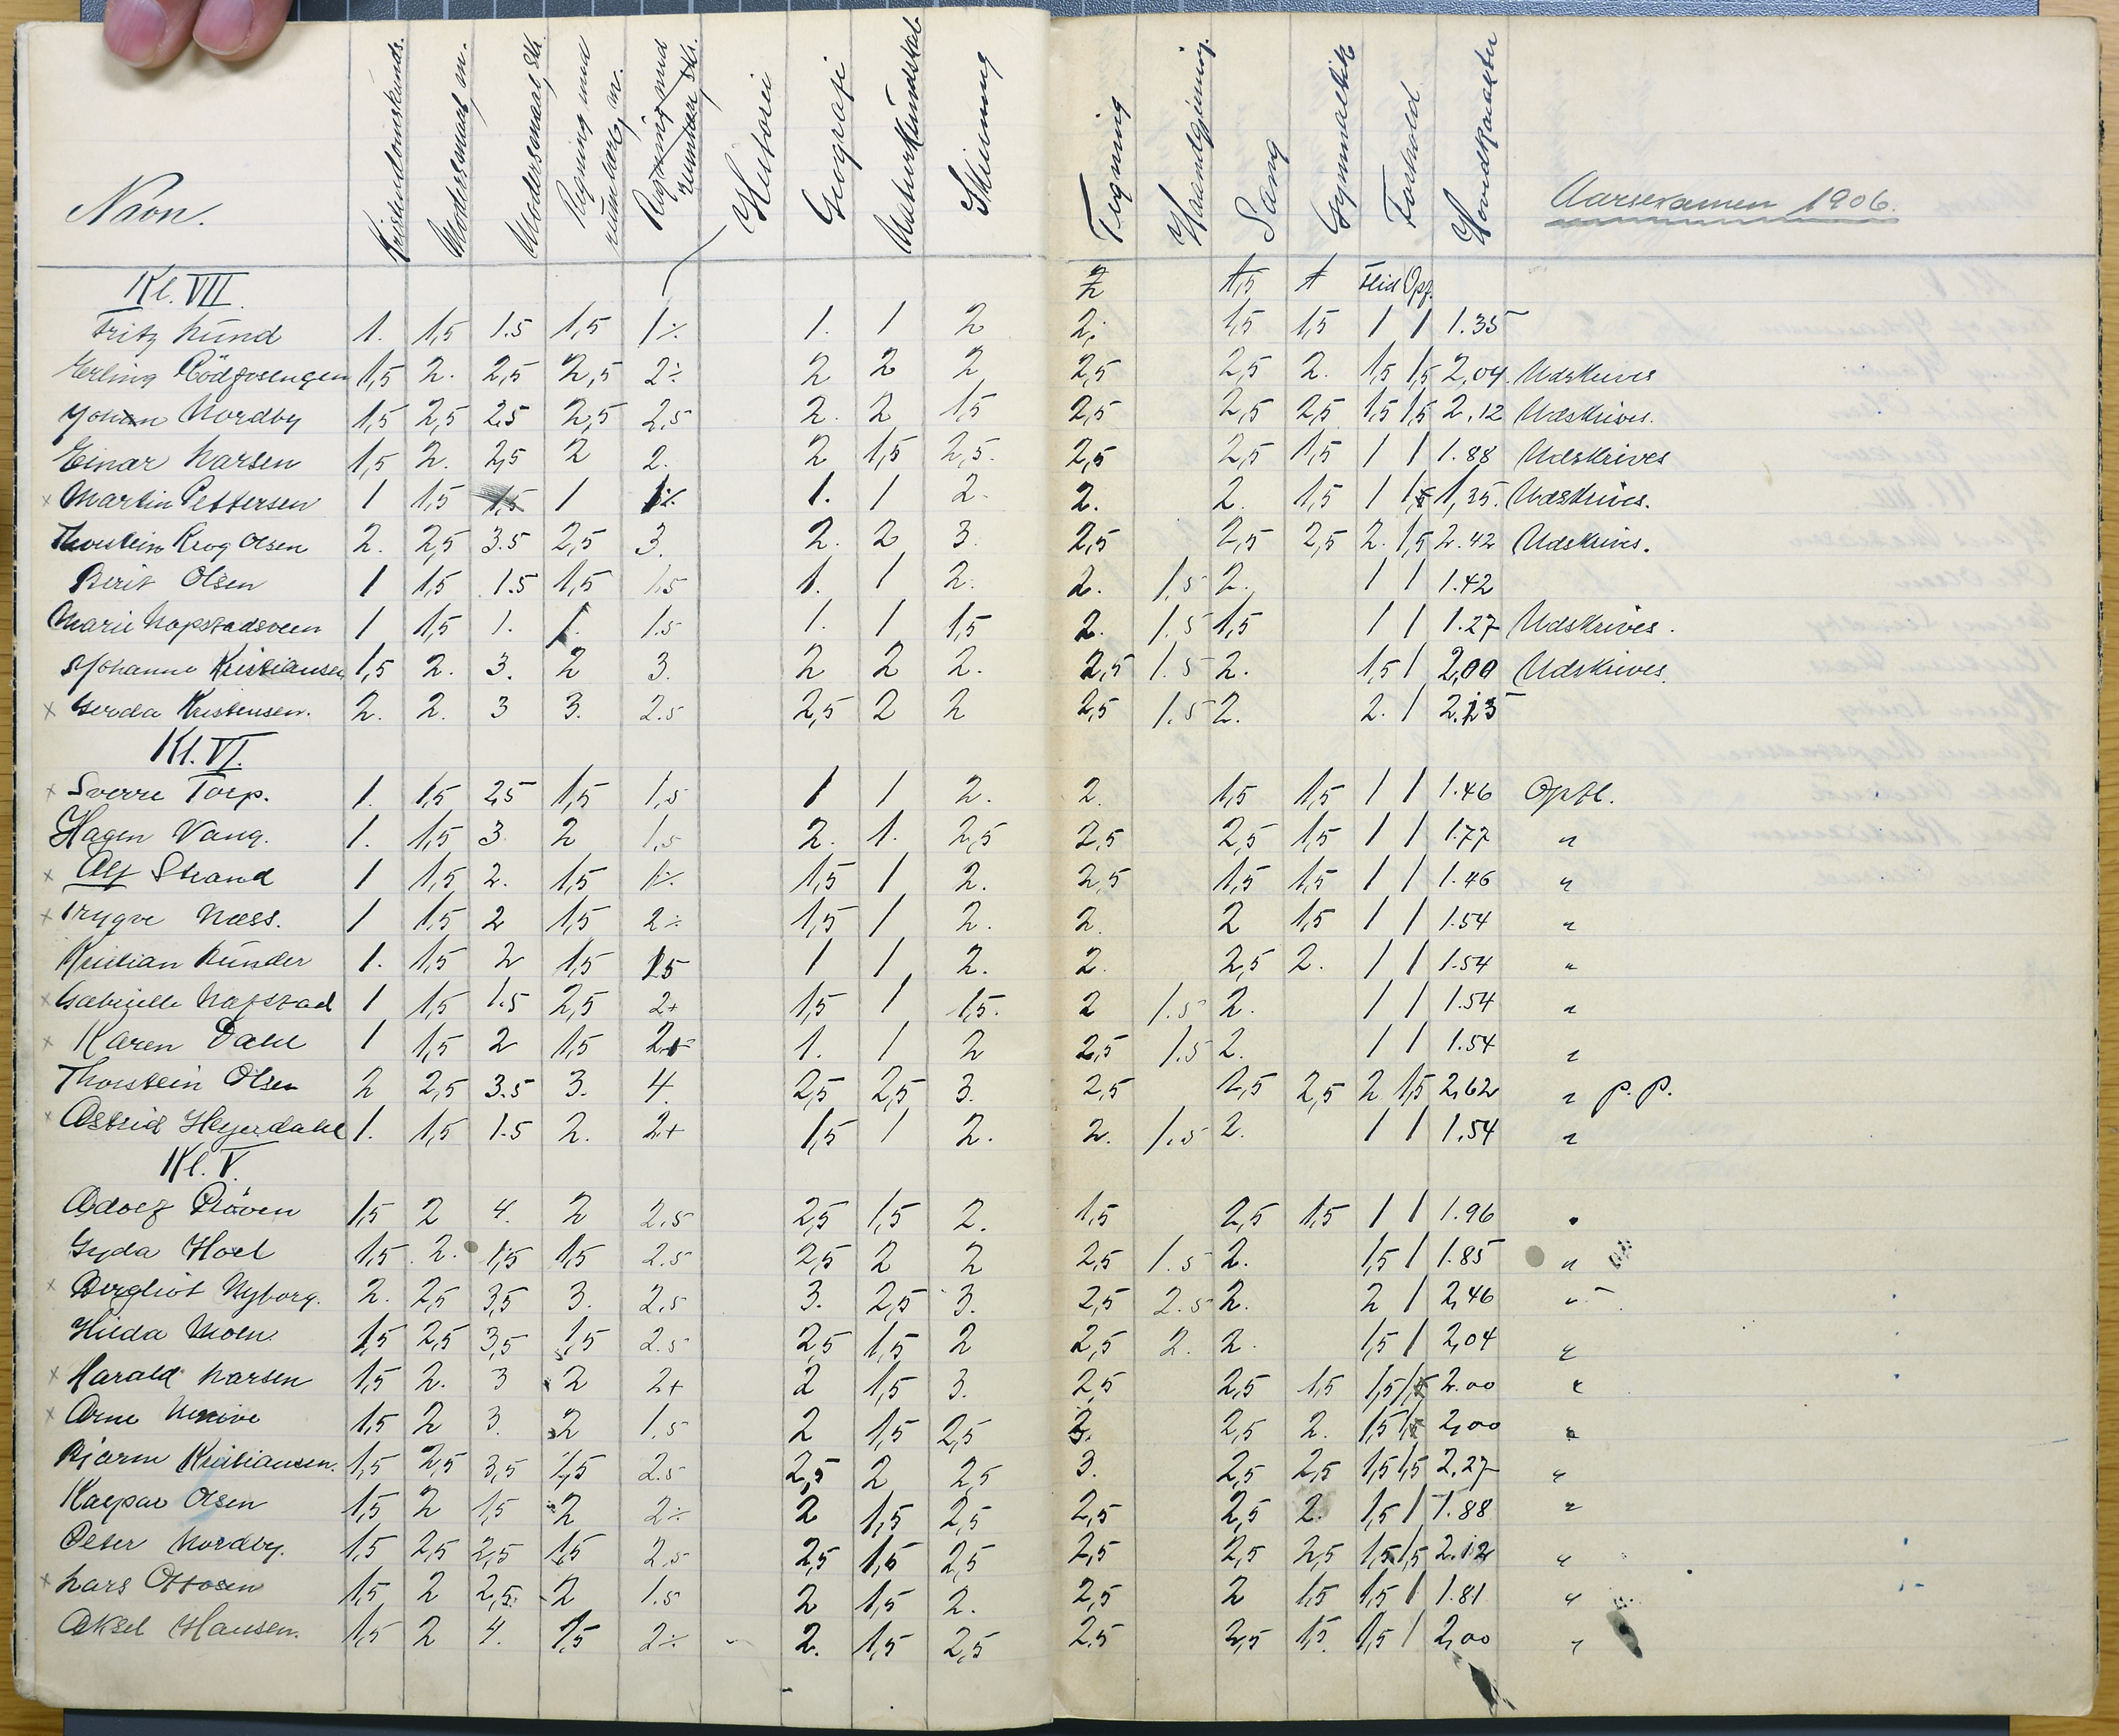 Navn. Kristendomskunds. Modersmaal, m. Modersmaal, Skr. Regning med rumlære, m. Regning med rumlære, Skr. Historie Geografi Naturkundskab Skrivning Tegning Haandgjerning. Sang Gymnastik Forhold Hovedkarakter Aarsexamen 1906.
Kl. VII 2 1,5 1 Flid Opf.
Fritz Lund 1. 1,5 1.5 1,5 1÷ 1. 1 2 2÷ 1,5 1,5 1 1 1.35
Erling Rödfosengen 1,5 2. 2,5 2,5 2÷ 2 2 2 2,5 2,5 2. 1,5 1,5 2,04. Udskrives
Johan Nordby 1,5 2,5 2.5 2,5 2.5 2. 2 1,5 2,5 2,5 2,5 1,5 1,5 2.12 Udskrives.
Einar Larsen 1,5 2. 2,5 2 2. 2 1,5 2,5. 2,5 2,5 1,5 1 1 1.88 Udskrives
x Martin Pettersen 1 1,5 1,5 1 1÷ 1. 1 2. 2. 2. 1,5 1 1,5 1,35. Udskrives.
Thorstein Krog Olsen 2. 2,5 3.5 2,5 3. 2. 2 3. 2,5 2,5 2,5 2. 1,5 2.42 Udskrives.
Berit Olsen 1 1,5 1.5 1,5 1.5 1. 1 2. 2. 1.5 2. 1 1 1.42
Marie Napstadsveen 1 1,5 1. 1. 1.5 1. 1 1,5 2. 1.5 1,5 1 1 1.27 Udskrives.
Johanne Kristiansen 1,5 2. 3. 2 3. 2 2 2. 2,5 1.5 2. 1,5 1 2,00 Udskrives.
x Gerda Kristensen. 2. 2. 3 3. 2.5 2,5 2 2 2,5 1.5 2. 2. 1 2.23
Kl. VI.
x Sverre Torp. 1. 1,5 2,5 1,5 1,5 1 1 2. 2. 1,5 1,5 1 1 1.46 Opfl.
Hagen Vang. 1. 1,5 3. 2 1,5 2. 1. 2,5 2,5 2,5 1,5 1 1 1.77 "
x Alf Strand 1 1,5 2. 1,5 1÷ 1,5 1 2. 2,5 1,5 1,5 1 1 1.46 "
x Trygve Næss. 1 1,5 2 1,5 2÷ 1,5 1 2. 2. 2 1,5 1 1 1.54 "
Kristian Lunder 1. 1,5 2 1,5 1.5 1 1 2. 2. 2,5 2. 1 1 1.54 "
x Gabrielle Napstad 1 1,5 1.5 2,5 2+ 1,5 1 1,5. 2 1.5 2. 1 1 1.54 "
x Karen Dahl 1 1,5 2 1,5 2+ 1. 1 2 2,5 1.5 2. 1 1 1.54 "
Thorstein Olsen 2 2,5 3.5 3. 4. 2,5 2,5 3. 2,5 2,5 2,5 2 1,5 2,62 " p.p.
x Astrid Heyerdahl 1. 1,5 1.5 2. 2+ 1,5 1 2. 2. 1.5 2. 1 1 1.54 "
Kl. V.
Adolf Pröven 1,5 2 4. 2 2.5 2,5 1,5 2. 1,5 2,5 1,5 1 1 1.96 "
Gyda Hoel 1,5 2. 1,5 1,5 2.5 2,5 2 2 2,5 1.5 2. 1,5 1 1.85 "
x Bergliot Nyborg. 2. 2,5 3,5 3. 2.5 3. 2,5 3. 2,5 2.5 2. 2 1 2,46 "
Hilda Moen 1,5 2,5 3,5 1,5 2.5 2,5 1,5 2 2,5 2. 2. 1,5 1 2,04 "
x Harald Larsen 1,5 2. 3 2 2+ 2 1,5 3. 2,5 2,5 1,5 1,5 1,5 2.00 "
x Arne 1,5 2 3. 2 1,5 2 1,5 2,5 3. 2,5 2. 1,5 1,5 2,00 "
Bjarne Kristiansen. 1,5 2,5 3,5 1,5 2.5 2,5 2 2,5 3. 2,5 2,5 1,5 1,5 2.27 "
Kaspar Olsen 1,5 2 1,5 2 2÷ 2 1,5 2,5 2,5 2,5 2. 1,5 1 1.88 "
Peter Nordby. 1,5 2,5 2,5 1,5 2.5 2,5 1,5 2,5 2,5 2,5 2,5 1,5 1,5 2.12 "
x Lars Ottosen 1,5 2 2,5. 2 1.5 2 1,5 2. 2,5 2 1,5 1,5 1 1.81 "
Aksel Hansen. 1,5 2 4. 1,5 2÷ 2. 1,5 2,5 2.5 2,5 1,5. 1,5 1 2,00 "